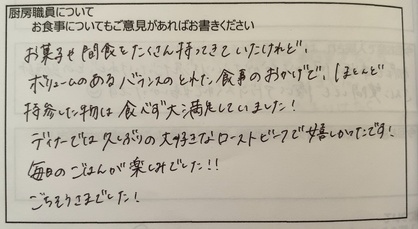 厨房職員について
お食事についてもご意見があればお書きください
お菓子や間食をたくさん持ってきていたけれど、
ボリュームのあるバランスのとれた食事のおかげで、ほとんど
持参した物は食べず大満足していました!
ディナーでは久しぶりの大好きなローストビーフで嬉しかったです!
毎日のごはんが楽しみでした!!
ごちそうさまでした!